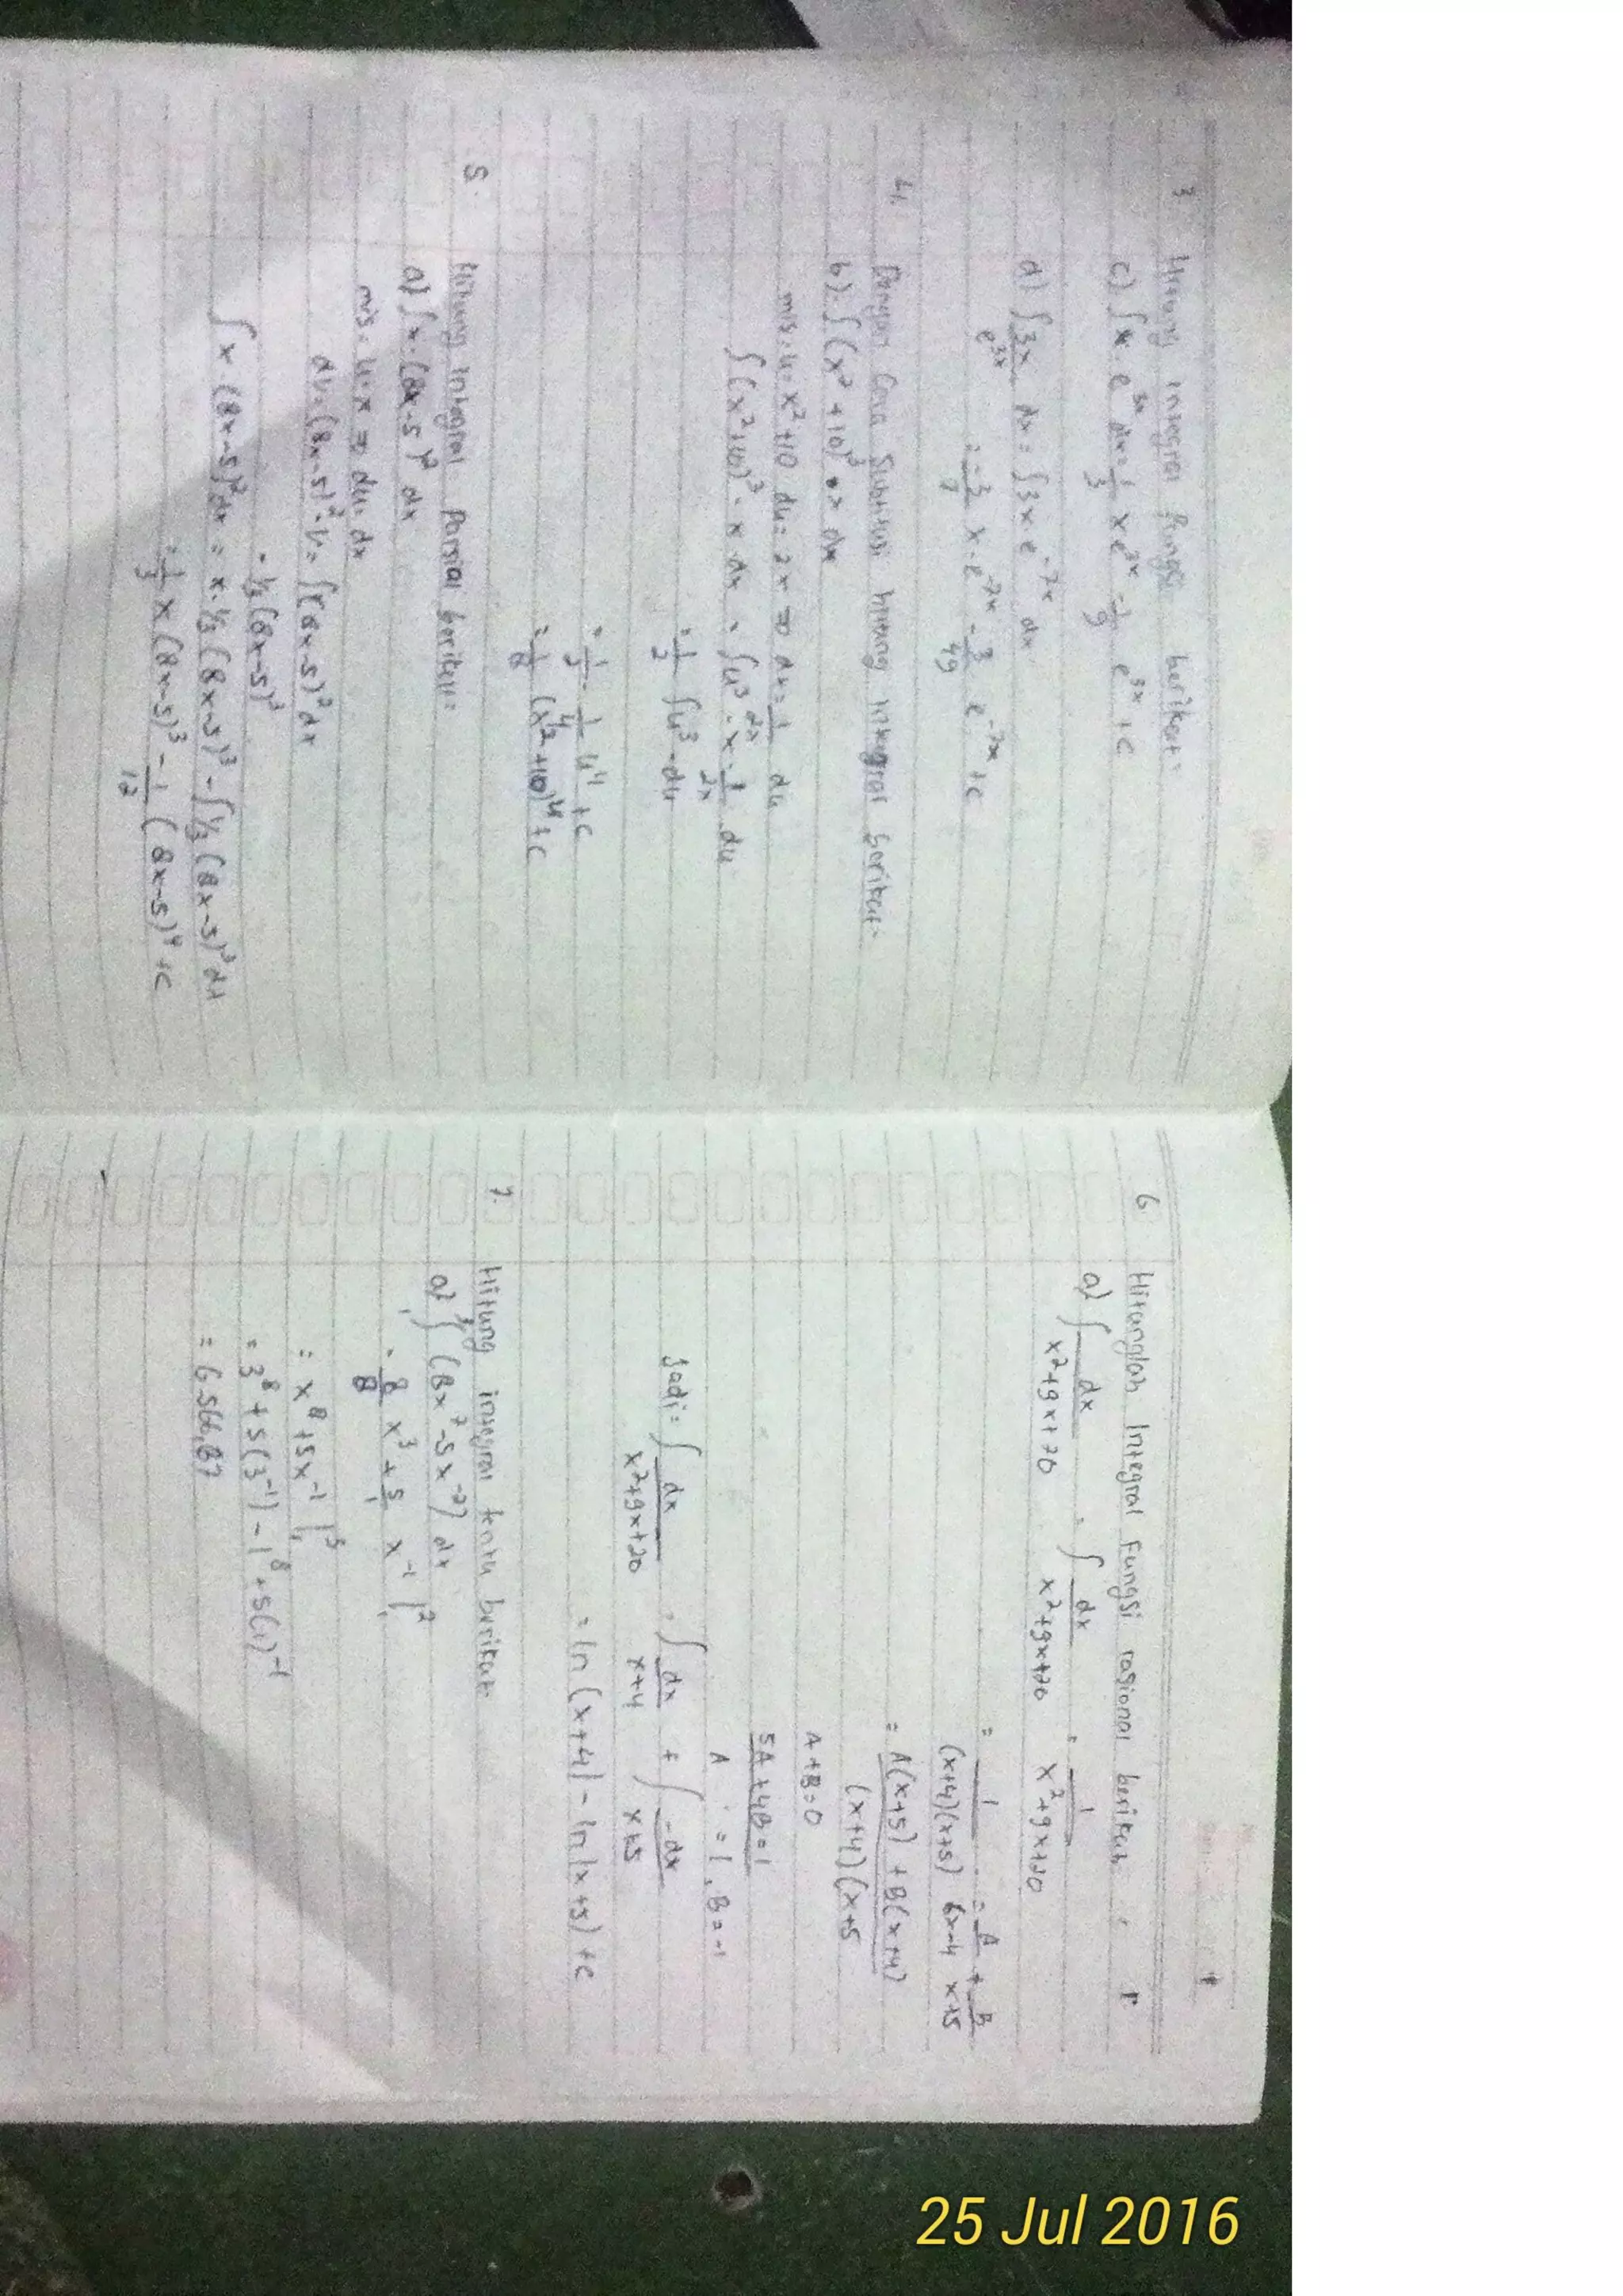 3. Hitung integral fungsi berikut:
c) ∫x.e³ˣ dx = 1/3 xe³ˣ - 1/9 e³ˣ + c
d) ∫ 3x/e³ˣ . dx = ∫3x.e⁻⁷ˣ dx
= -3/7 x.e⁻⁷ˣ - 3/49 e⁻⁷ˣ + c
4. Dengan Cara Subtitusi hitung integral berikut:
b) ∫(x² + 10)³ dx
mis: u = x² + 10 du = 2x ⇒ dx = 1/2x du
∫(x² + 10)³ . x dx = ∫u³ . x . 1/2x du
= 1/2 ∫u³ . du
= 1/2 . 1/4 u⁴ + c
= 1/8 (x² + 10)⁴ + c
5. Hitung integral parsial berikut:
a) ∫x.(8x-5)² dx
mis: u = x ⇒ du = dx
dv = (8x-5)² . v = ∫(8x-5)² dx
= 1/3 (8x-5)³
∫x.(8x-5)² dx = x.1/3 (8x-5)³ - ∫1/3 (8x-5)³ dx
= 1/3 x (8x-5)³ - 1/12 (8x-5)⁴ + c
6. Hitunglah Integral fungsi rasional berikut:
a) ∫ dx/x²+9x+20 = ∫ dx/x²+9x+20 = 1/x²+9x+20
= 1/(x+4)(x+5) = A/x-4 + B/x+5
= A(x+5) + B(x+4)/(x+4)(x+5
A+B=0
5A+4B=1
A = 1, B = -1
Jadi = ∫ dx/x²+9x+20 = ∫ dx/x+4 + ∫ -dx/x+5
= ln (x+4) - ln (x+5) + c
7. Hitung integral tentu berikut:
a) ∫ (8x⁷ - 5x⁻²) dx
= 8/8 x³ + 5/1 x⁻¹ |₁²
= x⁸ + 5x⁻¹ |₁³
= 3⁸ + 5(3⁻¹) - 1⁸ + 5(1)⁻¹
= 6566,67
25 Jul 2016